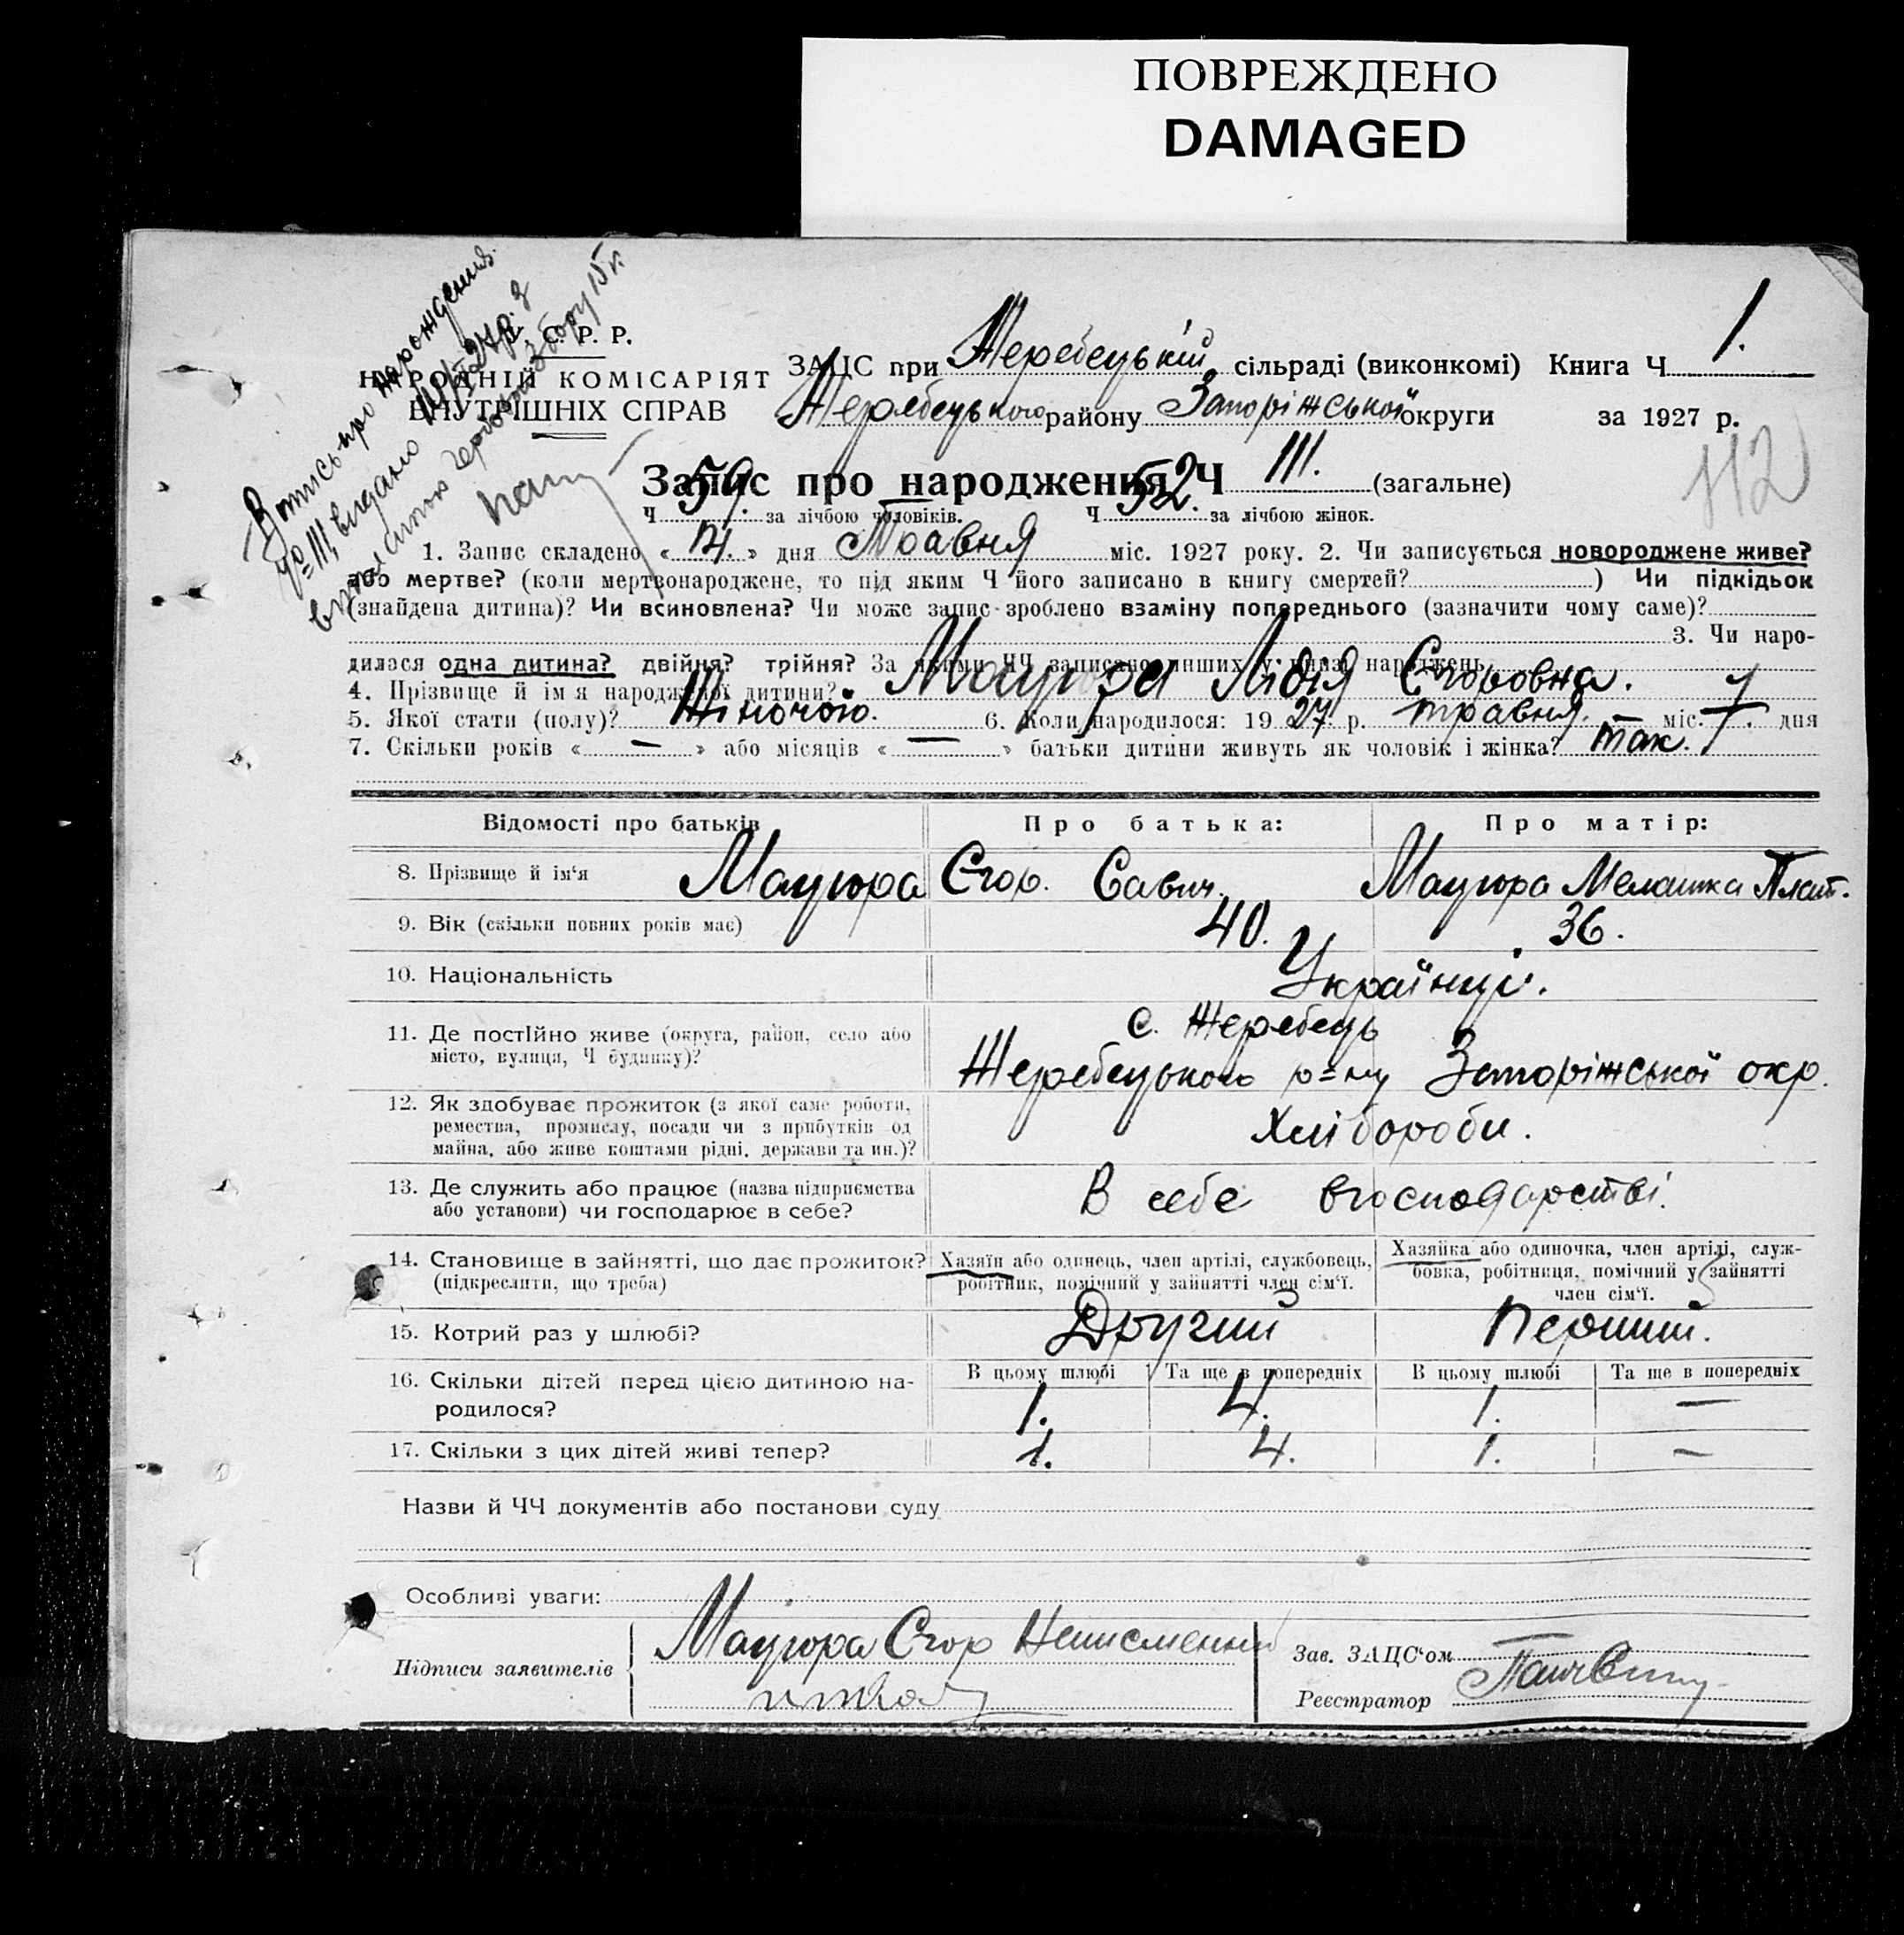 ПОВРЕЖДЕНО
DAMAGED
Запись про нарождения
№ 111, видано
У. С. Р. Р.
НАРОДНІЙ КОМІСАРІЯТ
ВНУТРІШНІХ СПРАВ
ЗАЦС при Жеребецькій сільраді (виконкомі) Книга Ч 1.
Жеребецького району Запоріжської округи за 1927 р.
112
Запис про народження Ч 111. (загальне)
Ч 59. за лічбою чоловіків. Ч 52. за лічбою жінок.
1. Запис складено « 14. » дня Травня міс. 1927 року. 2. Чи записується новороджене живе?
або мертве? (коли мертвонароджене, то під яким Ч його записано в книгу смертей? ) Чи підкідьок
(знайдена дитина)? Чи всиновлена? Чи може запис зроблено взаміну попереднього (зазначити чому саме)?
3. Чи наро-
дилася одна дитина? двійня? трійня? За якими ЧЧ записано инших у книзі народжень
4. Прізвище й ім'я народженої дитини? Мацюра Лідія Єгоровна.
5. Якої стати (полу)? Жіночої. 6. Коли народилося: 1927. р. травня. міс. 7. дня
7. Скільки років « — » або місяців « — » батьки дитини живуть як чоловік і жінка? так.
Відомості про батьків Про батька: Про матір:
8. Прізвище й ім'я Мацюра Єгор. Савич. Мацюра Мелашка Плат.
9. Вік (скільки повних років має) 40. 36.
10. Національність Українці.
11. Де постійно живе (округа, район, село або місто, вулиця, Ч будинку)? с. Жеребець
Жеребецького р-ну Запоріжської окр.
12. Як здобуває прожиток (з якої саме роботи,
ремества, промислу, посади чи з прибутків од
майна, або живе коштами рідні, держави та ин.)? Хлібороби.
13. Де служить або працює (назва підприємства
або установи) чи господарює в себе? В себе вгосподарстві.
14. Становище в зайнятті, що дає прожиток?
(підкреслити, що треба)
Хазяїн або одинець, член артілі, службовець,
робітник, помічний у зайнятті член сім'ї.
Хазяйка або одиночка, член артілі, служ-
бовка, робітниця, помічний у зайнятті
член сім'ї.
15. Котрий раз у шлюбі? Другий Перший.
16. Скільки дітей перед цією дитиною на-
родилося?
В цьому шлюбі Та ще в попередніх В цьому шлюбі Та ще в попередніх
1. 4. 1. —
17. Скільки з цих дітей живі тепер? 1. 4. 1. —
Назви й ЧЧ документів або постанови суду
Особливі уваги:
Підписи заявителів Мацюра Єгор Неписменний
Зав. ЗАЦС'ом
Реєстратор